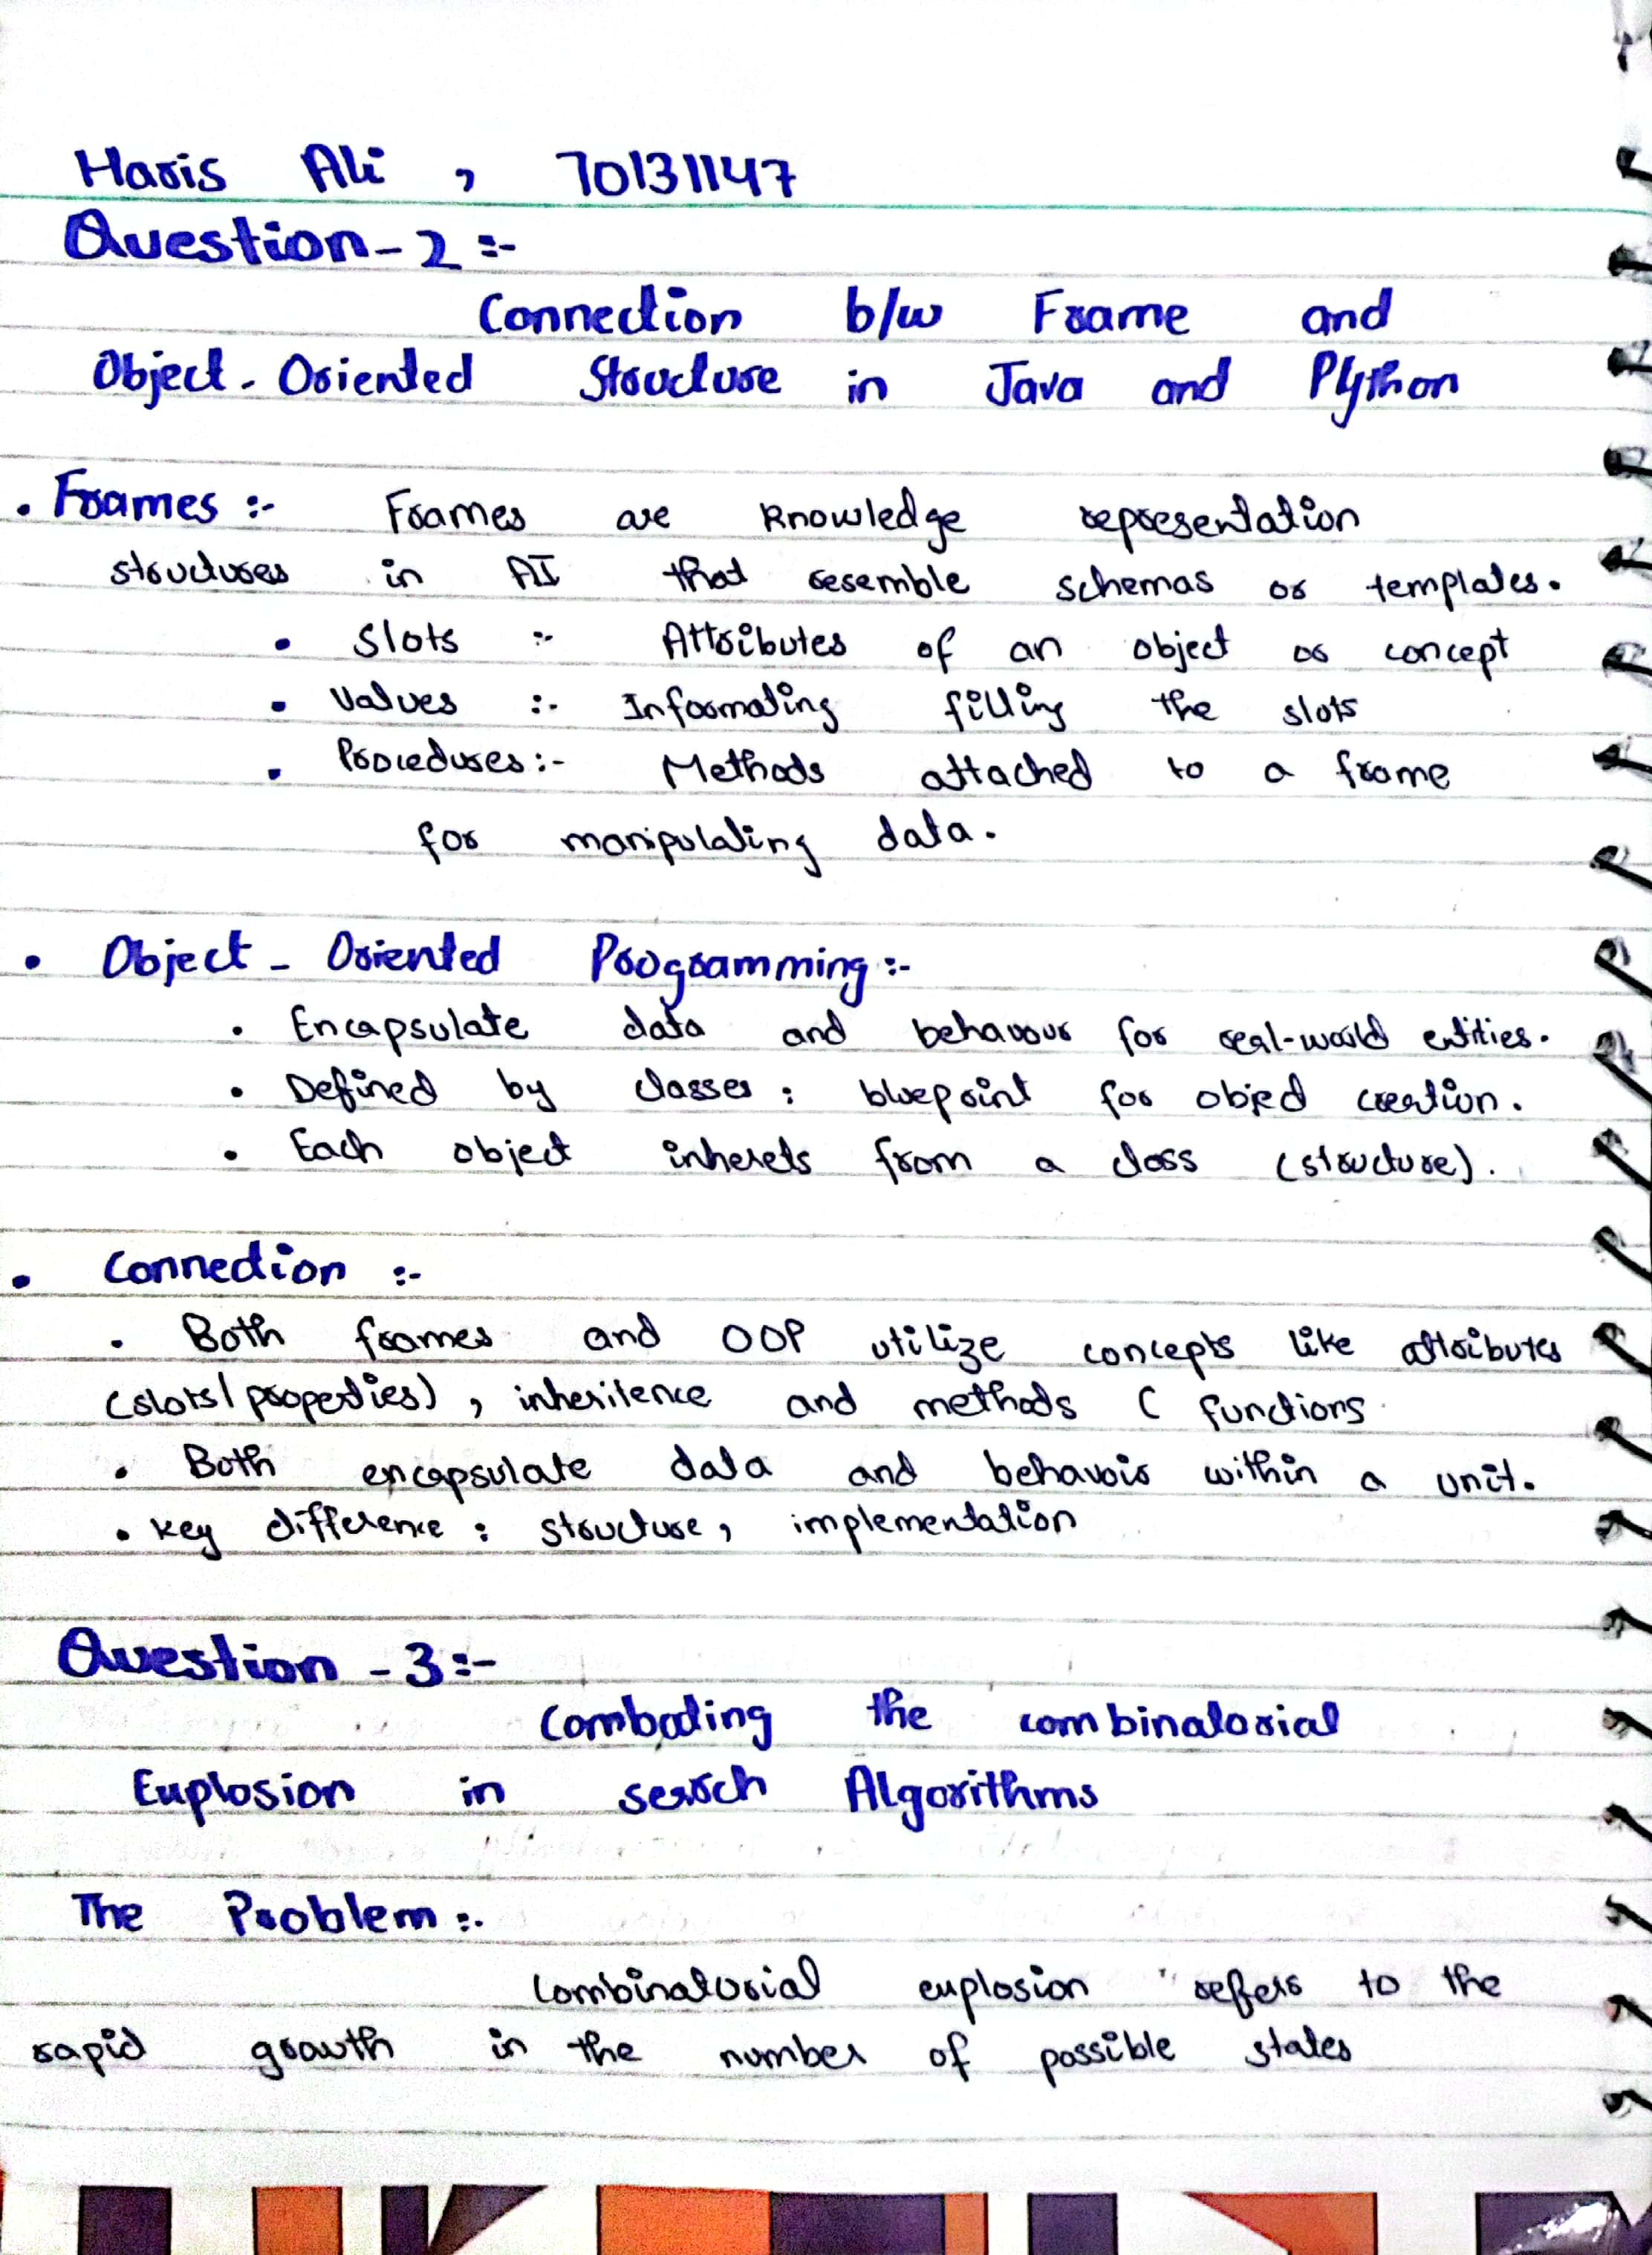 Haris Ali , 70131147
Question-2 :-
Connection b/w Frame and
Object-Oriented Structure in Java and Python
• Frames :- Frames are Knowledge representation
structures in AI that resemble schemas or templates.
• Slots :- Attributes of an object or concept
• Values :- Informating filling the slots
• Procedures :- Methods attached to a frame
for manipulating data.
• Object-Oriented Programming :-
• Encapsulate data and behavour for real-world entities.
• Defined by classes : blueprint for object creation.
• Each object inherets from a class (structure).
• Connection :-
• Both frames and OOP utilize concepts like attributes
(slots/properties), inheritence and methods ( functions
• Both encapsulate data and behavoir within a unit.
• Key difference : structure, implementation
Question -3 :-
Combating the combinatorial
Explosion in search Algorithms
The Problem :-
Combinatorial explosion refers to the
rapid growth in the number of possible states